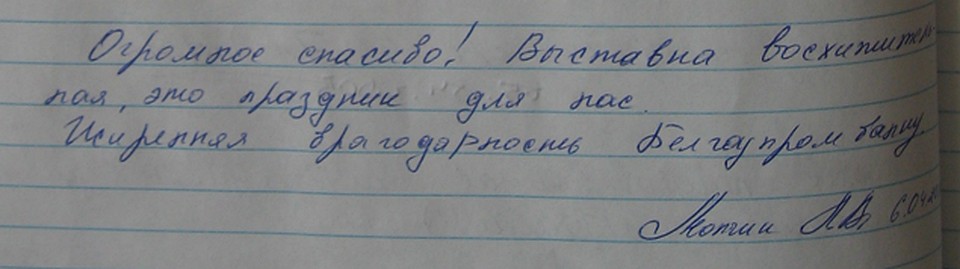 Огромное спасибо! Выставка восхититель
ная, это праздник для нас.
Искренняя благодарность Белгазпромбанку.
6.04